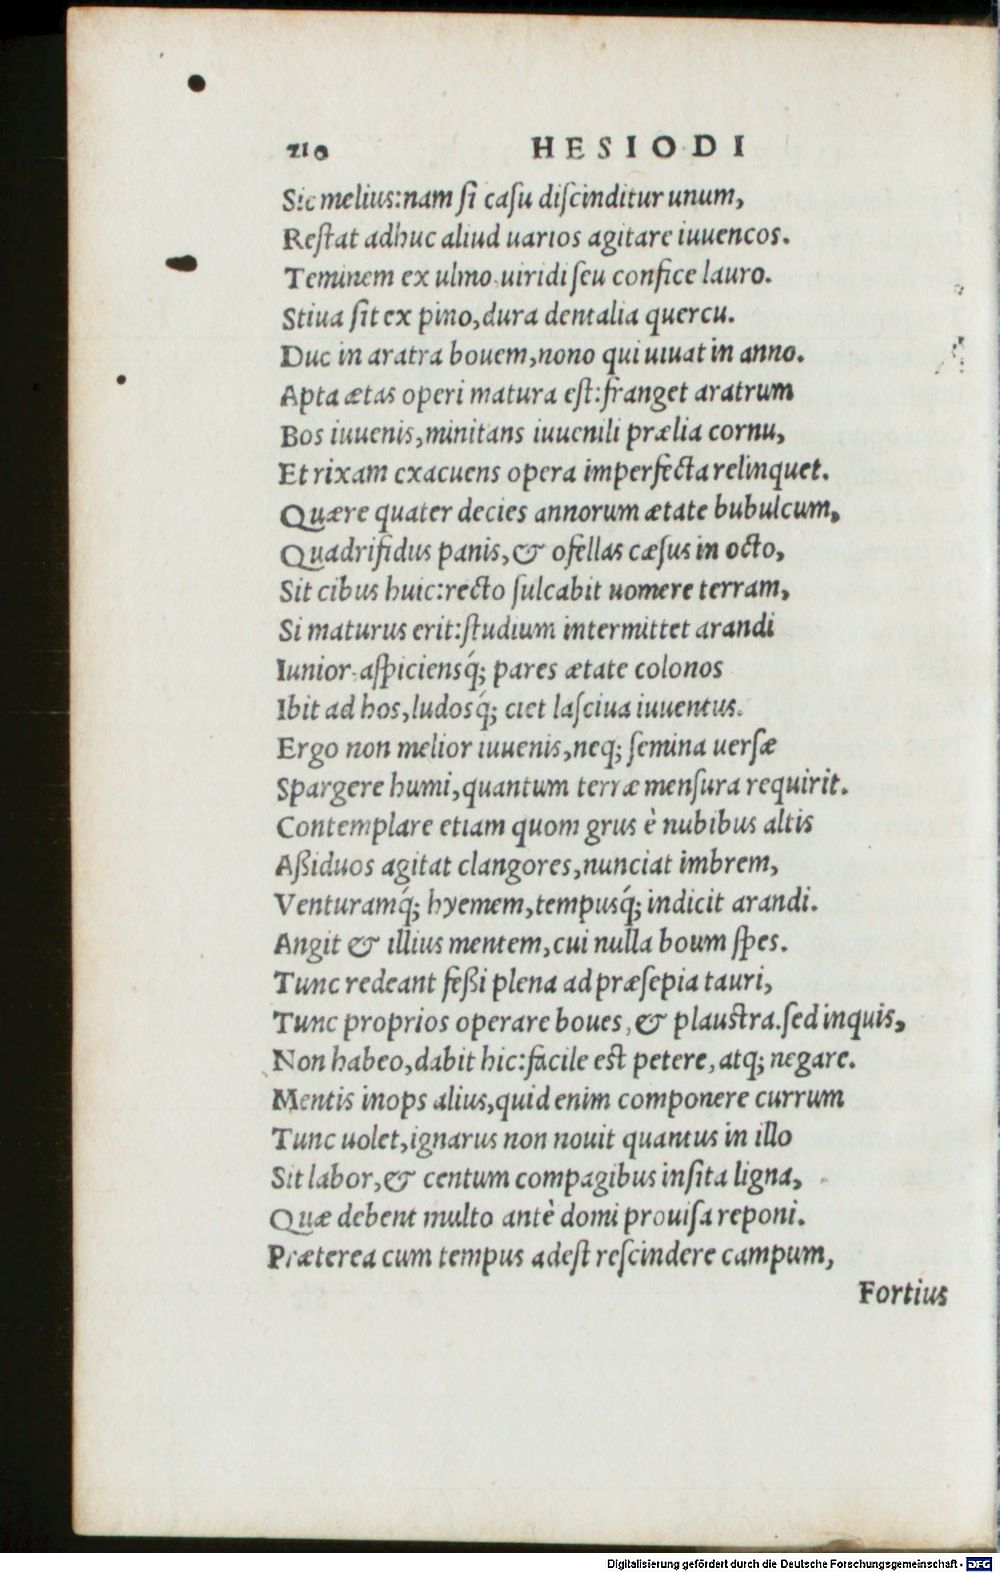 210 HESIODI
Sic melius:nam ſi caſu diſcinditur unum,
Reſtat adhuc aliud uarios agitare iuuencos.
Teminem ex ulmo uiridi ſeu confice lauro.
Stiua ſit ex pino,dura dentalia quercu.
Duc in aratra bouem,nono qui uiuat in anno.
Apta ætas operi matura eſt:franget aratrum
Bos iuuenis,minitans iuuenili prælia cornu,
Et rixam exacuens opera imperfecta relinquet.
Quære quater decies annorum ætate bubulcum,
Quadrifidus panis,& ofellas cæſus in octo,
Sit cibus huic:recto ſulcabit uomere terram,
Si maturus erit:ſtudium intermittet arandi
Iunior.aſpiciensq́; pares ætate colonos
Ibit ad hos,ludosq́; ciet laſciua iuuentus.
Ergo non melior iuuenis,neq; ſemina uerſæ
Spargere humi,quantum terræ menſura requirit.
Contemplare etiam quom grus è nubibus altis
Aßiduos agitat clangores,nunciat imbrem,
Venturamq́; hyemem,tempusq́; indicit arandi.
Angit & illius mentem,cui nulla boum ſpes.
Tunc redeant feßi plena ad præſepia tauri,
Tunc proprios operare boues,& plauſtra.ſed inquis,
Non habeo,dabit hic:facile eſt petere,atq; negare.
Mentis inops alius,quid enim componere currum
Tunc uolet,ignarus non nouit quantus in illo
Sit labor,& centum compagibus inſita ligna,
Quæ debent multo antè domi prouiſa reponi.
Præterea cum tempus adeſt reſcindere campum,
Fortius
Digitalisierung gefördert durch die Deutsche Forschungsgemeinschaft - DFG